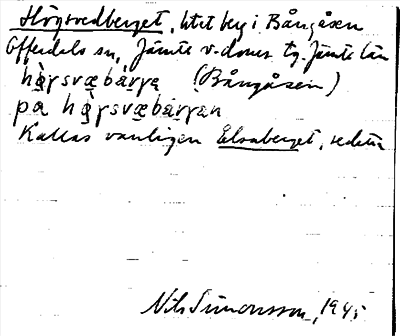 Högsvedberget, litet berg i Bångåsen
Offerdals sn, Jämtl v. doms tg. Jämtl län
hǫ̀gsvæbárγa (Bångåsen)
pa hǫ̀gsvæbárγan
Kallas vanligen Elsaberget, se detta
Nils Simonsson, 1945